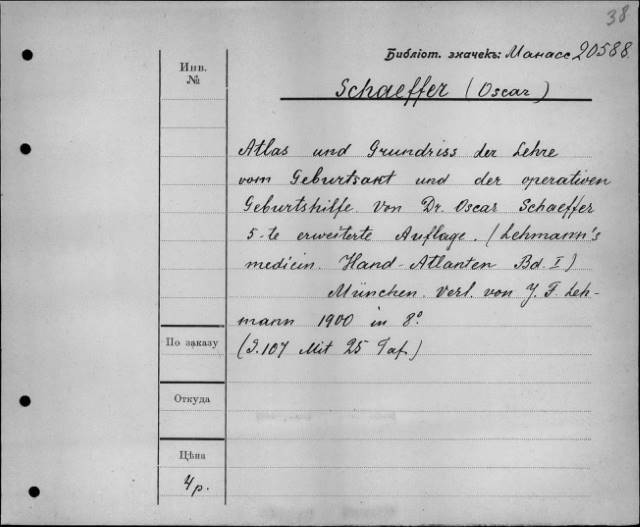 38
Библіот. значекъ: Манасс 20588
Инв.
№
Schaeffer (Oscar)
Atlas und Grundriss der Lehre
vom Geburtsakt und der operativen
Geburtshilfe. Von Dr. Oscar Schaeffer
5-te erweiterte Auflage. (Lehmann's
medicin. Hand-Atlanten Bd. I)
München. Verl. von J. F. Leh-
mann 1900 in 8°
(S. 107 Mit 25 Taf.)
По заказу
Откуда
Цѣна
4 р.